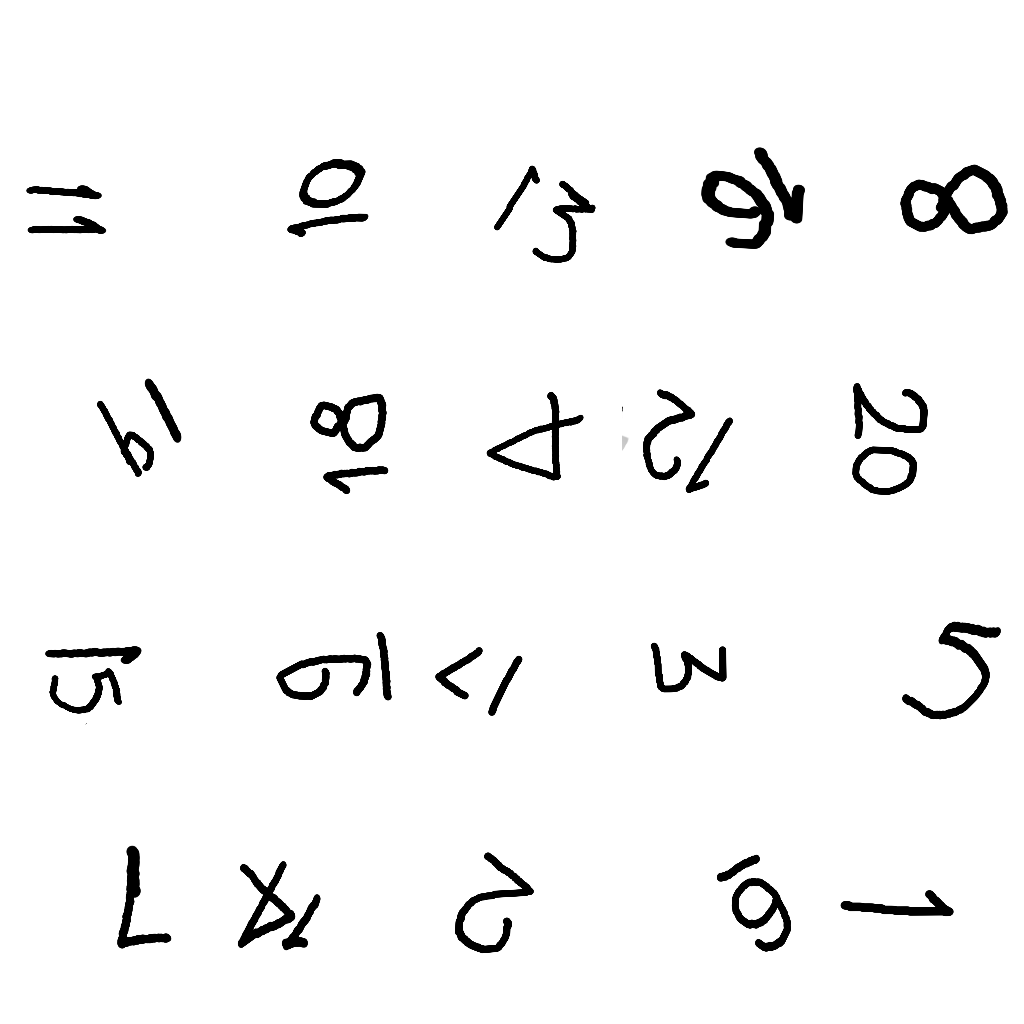 11 10 13 16 8
19 18 4 12 20
15 9 17 3 5
7 14 2 6 1